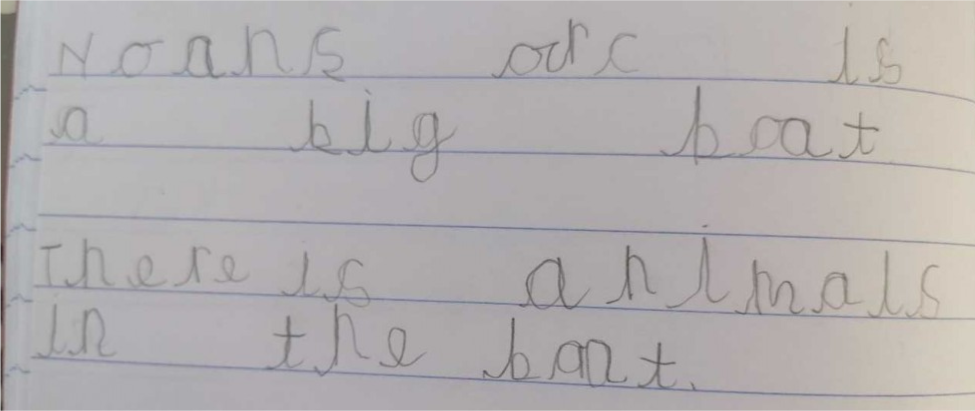 Noahs arc is
a big boat
There is animals
in the boat.